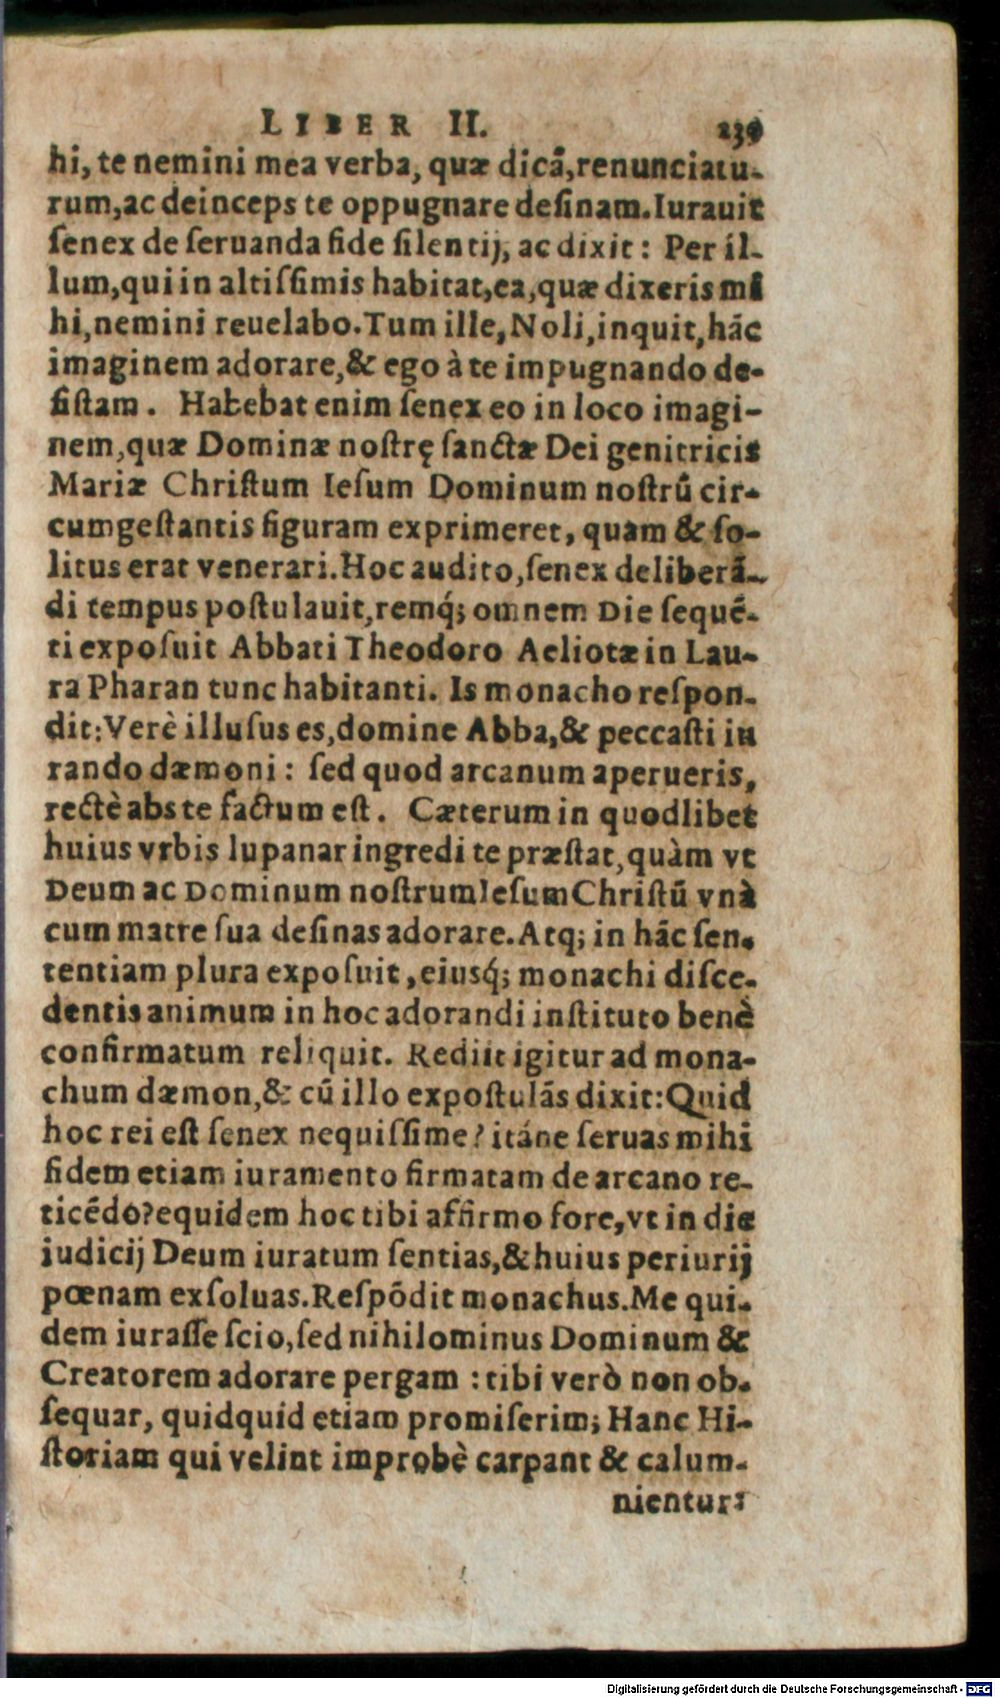 LIBER II. 239
hi, te nemini mea verba, quæ dicā, renunciatu-
rum, ac deinceps te oppugnare desinam. Iurauit
ſenex de ſeruanda fide ſilentij, ac dixit: Per il-
lum, qui in altiſſimis habitat, ea, quæ dixeris mi
hi, nemini reuelabo. Tum ille, Noli, inquit, hāc
imaginem adorare, & ego à te impugnando de-
ſiſtam. Habebat enim ſenex eo in loco imagi-
nem, quæ Dominæ noſtrę ſanctæ Dei genitricis
Mariæ Chriſtum Ieſum Dominum noſtrū cir-
cumgeſtantis figuram exprimeret, quam & ſo-
litus erat venerari. Hoc audito, ſenex deliberā-
di tempus poſtulauit, remq́; omnem Die ſequē-
ti expoſuit Abbati Theodoro Aeliotæ in Lau-
ra Pharan tunc habitanti. Is monacho reſpon-
dit: Verè illuſus es, domine Abba, & peccaſti iu
rando dæmoni: ſed quod arcanum aperueris,
rectè abs te factum eſt. Cæterum in quodlibet
huius vrbis lupanar ingredi te præſtat, quàm vt
Deum ac Dominum noſtrum Ieſum Chriſtū vnà
cum matre ſua deſinas adorare. Atq; in hāc ſen-
tentiam plura expoſuit, eiusq́; monachi diſce-
dentis animum in hoc adorandi inſtituto benè
confirmatum reliquit. Rediit igitur ad mona-
chum dæmon, & cū illo expoſtulās dixit: Quid
hoc rei eſt ſenex nequiſſime? itáne ſeruas mihi
fidem etiam iuramento firmatam de arcano re-
ticēdo? equidem hoc tibi affirmo fore, vt in die
iudicij Deum iuratum ſentias, & huius periurij
pœnam exſoluas. Reſpōdit monachus. Me qui-
dem iuraſſe ſcio, ſed nihilominus Dominum &
Creatorem adorare pergam: tibi verò non ob-
ſequar, quidquid etiam promiſerim; Hanc Hi-
ſtoriam qui velint improbè carpant & calum-
nientur:
Digitalisierung gefördert durch die Deutsche Forschungsgemeinschaft - DFG